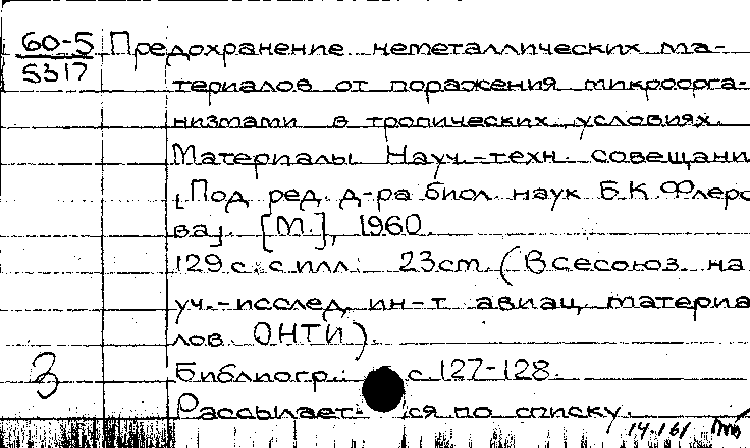 60-5
5317
Предохранение неметаллических ма-
териалов от поражения микроорга-
низмами в тропических условиях.
Материалы Науч.-техн. совещани
[Под ред. д-ра биол. наук Б.К. Флеро
ва]. [М.], 1960.
129 с. с илл. 23см. (Всесоюз. на
уч.-исслед. ин-т авиац. материа
лов. ОНТИ).
Библиогр.: с. 127-128.
Рассылается по списку.
3